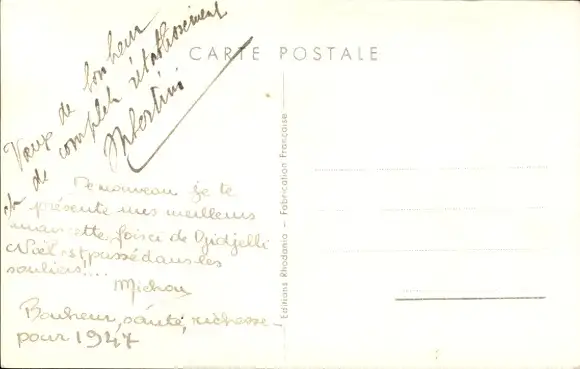 CARTE POSTALE
Vœux de bonheur
et de complet rétablissement
Albertini
De nouveau je te
présente mes meilleurs
mais cette fois ci de Djidjelli
Noël est passé dans les
souliers....
Michou
Bonheur, santé, richesse
pour 1947
Editions Rhodania - Fabrication Française